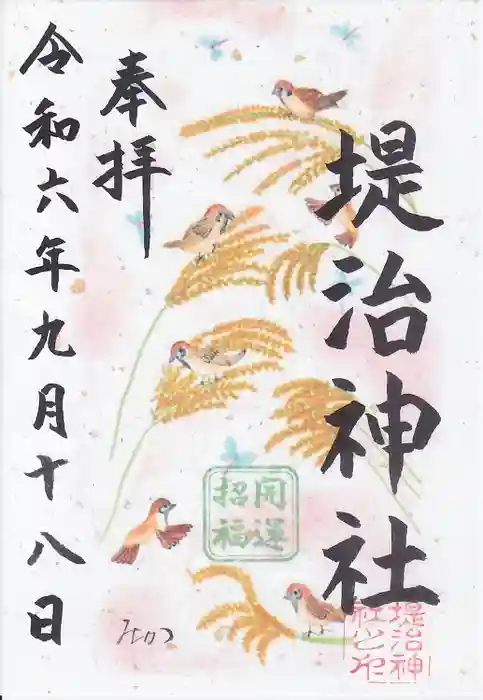 堤治神社
奉拝
令和六年九月十八日
開運
招福
堤治神
社之印